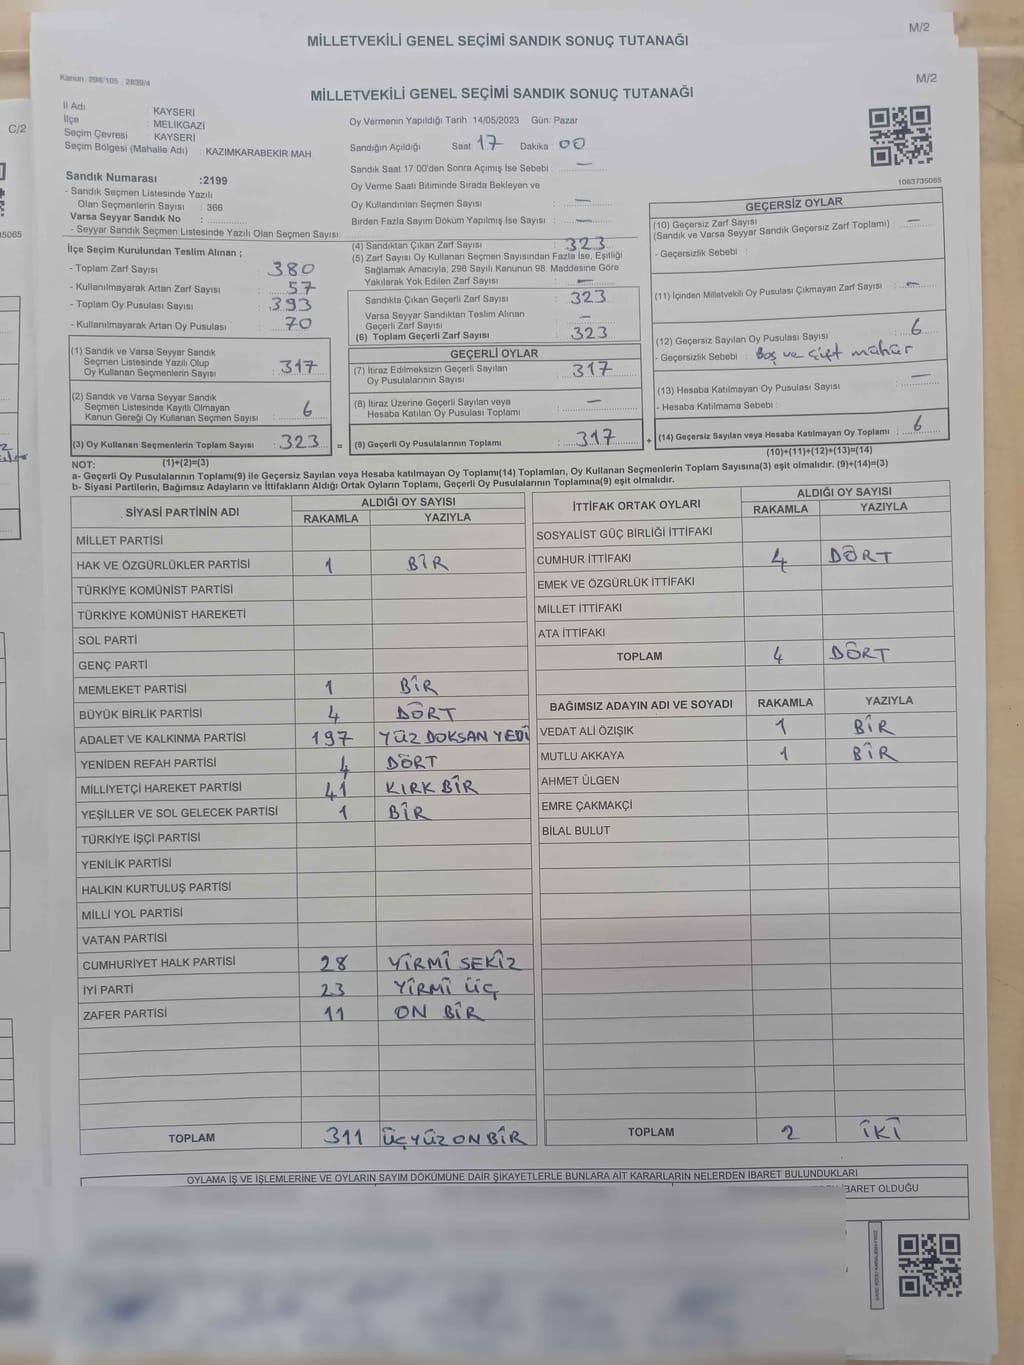 M/2
MİLLETVEKİLİ GENEL SEÇİMİ SANDIK SONUÇ TUTANAĞI
Kanun: 298/105 , 2839/4
M/2
MİLLETVEKİLİ GENEL SEÇİMİ SANDIK SONUÇ TUTANAĞI
C/2
İl Adı : KAYSERİ
İlçe : MELİKGAZİ
Seçim Çevresi : KAYSERİ
Seçim Bölgesi (Mahalle Adı) : KAZIMKARABEKİR MAH.
Sandık Numarası :2199
- Sandık Seçmen Listesinde Yazılı
Olan Seçmenlerin Sayısı : 366
Varsa Seyyar Sandık No :
- Seyyar Sandık Seçmen Listesinde Yazılı Olan Seçmen Sayısı:
İlçe Seçim Kurulundan Teslim Alınan ;
- Toplam Zarf Sayısı : 380
- Kullanılmayarak Artan Zarf Sayısı : 57
- Toplam Oy Pusulası Sayısı : 393
- Kullanılmayarak Artan Oy Pusulası : 70
(1) Sandık ve Varsa Seyyar Sandık
Seçmen Listesinde Yazılı Olup
Oy Kullanan Seçmenlerin Sayısı : 317
(2) Sandık ve Varsa Seyyar Sandık
Seçmen Listesinde Kayıtlı Olmayan
Kanun Gereği Oy Kullanan Seçmen Sayısı : 6
(3) Oy Kullanan Seçmenlerin Toplam Sayısı : 323 =
(1)+(2)=(3)
Oy Vermenin Yapıldığı Tarih 14/05/2023 Gün: Pazar
Sandığın Açıldığı Saat : 17 Dakika : 00
Sandık Saat 17:00'den Sonra Açımış İse Sebebi : —
Oy Verme Saati Bitiminde Sırada Bekleyen ve
Oy Kullandırılan Seçmen Sayısı : —
Birden Fazla Sayım Döküm Yapılmış İse Sayısı : —
(4) Sandıktan Çıkan Zarf Sayısı : 323
(5) Zarf Sayısı Oy Kullanan Seçmen Sayısından Fazla İse, Eşitliği
Sağlamak Amacıyla; 298 Sayılı Kanunun 98. Maddesine Göre
Yakılarak Yok Edilen Zarf Sayısı : —
Sandıkta Çıkan Geçerli Zarf Sayısı : 323
Varsa Seyyar Sandıktan Teslim Alınan
Geçerli Zarf Sayısı : —
(6) Toplam Geçerli Zarf Sayısı : 323
GEÇERLİ OYLAR
(7) İtiraz Edilmeksizin Geçerli Sayılan
Oy Pusulalarının Sayısı : 317
(8) İtiraz Üzerine Geçerli Sayılan veya
Hesaba Katılan Oy Pusulası Toplamı : —
(9) Geçerli Oy Pusulalarının Toplamı : 317 +
1083735065
GEÇERSİZ OYLAR
(10) Geçersiz Zarf Sayısı
(Sandık ve Varsa Seyyar Sandık Geçersiz Zarf Toplamı) : —
- Geçersizlik Sebebi :
(11) İçinden Milletvekili Oy Pusulası Çıkmayan Zarf Sayısı : —
(12) Geçersiz Sayılan Oy Pusulası Sayısı : 6
- Geçersizlik Sebebi : Boş ve çift mühür
(13) Hesaba Katılmayan Oy Pusulası Sayısı : —
- Hesaba Katılmama Sebebi :
(14) Geçersiz Sayılan veya Hesaba Katılmayan Oy Toplamı : 6
(10)+(11)+(12)+(13)=(14)
NOT:
a- Geçerli Oy Pusulalarının Toplamı(9) ile Geçersiz Sayılan veya Hesaba katılmayan Oy Toplamı(14) Toplamları, Oy Kullanan Seçmenlerin Toplam Sayısına(3) eşit olmalıdır. (9)+(14)=(3)
b- Siyasi Partilerin, Bağımsız Adayların ve İttifakların Aldığı Ortak Oyların Toplamı, Geçerli Oy Pusulalarının Toplamına(9) eşit olmalıdır.
SİYASİ PARTİNİN ADI ALDIĞI OY SAYISI
RAKAMLA YAZIYLA
MİLLET PARTİSİ
HAK VE ÖZGÜRLÜKLER PARTİSİ 1 BİR
TÜRKİYE KOMÜNİST PARTİSİ
TÜRKİYE KOMÜNİST HAREKETİ
SOL PARTİ
GENÇ PARTİ
MEMLEKET PARTİSİ 1 BİR
BÜYÜK BİRLİK PARTİSİ 4 DÖRT
ADALET VE KALKINMA PARTİSİ 197 YÜZ DOKSAN YEDİ
YENİDEN REFAH PARTİSİ 4 DÖRT
MİLLİYETÇİ HAREKET PARTİSİ 41 KIRK BİR
YEŞİLLER VE SOL GELECEK PARTİSİ 1 BİR
TÜRKİYE İŞÇİ PARTİSİ
YENİLİK PARTİSİ
HALKIN KURTULUŞ PARTİSİ
MİLLİ YOL PARTİSİ
VATAN PARTİSİ
CUMHURİYET HALK PARTİSİ 28 YİRMİ SEKİZ
İYİ PARTİ 23 YİRMİ ÜÇ
ZAFER PARTİSİ 11 ON BİR
TOPLAM 311 ÜÇYÜZ ON BİR
İTTİFAK ORTAK OYLARI ALDIĞI OY SAYISI
RAKAMLA YAZIYLA
SOSYALİST GÜÇ BİRLİĞİ İTTİFAKI
CUMHUR İTTİFAKI 4 DÖRT
EMEK VE ÖZGÜRLÜK İTTİFAKI
MİLLET İTTİFAKI
ATA İTTİFAKI
TOPLAM 4 DÖRT
BAĞIMSIZ ADAYIN ADI VE SOYADI RAKAMLA YAZIYLA
VEDAT ALİ ÖZIŞIK 1 BİR
MUTLU AKKAYA 1 BİR
AHMET ÜLGEN
EMRE ÇAKMAKÇİ
BİLAL BULUT
TOPLAM 2 İKİ
OYLAMA İŞ VE İŞLEMLERİNE VE OYLARIN SAYIM DÖKÜMÜNE DAİR ŞİKAYETLERLE BUNLARA AİT KARARLARIN NELERDEN İBARET BULUNDUKLARI
İBARET OLDUĞU